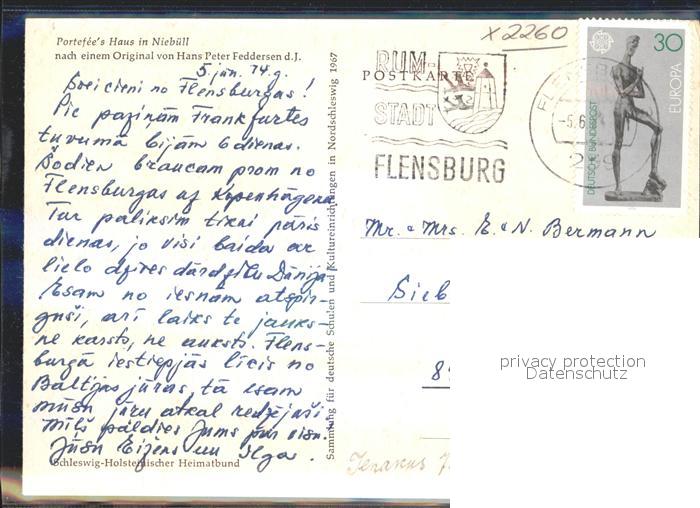 Portefée's Haus in Niebüll
nach einem Original von Hans Peter Feddersen d.J.
5. jūn. 74.g.
Sveicieni no Flensburgas!
Pie paziņām Frankfurtes
tuvumā bijām 6 dienas.
Šodien braucam prom no
Flensburgas uz Kopenhāgenu
Tur paliksim tikai pāris
dienas, jo visi baida ar
lielo dzīves dārdzību Dānijā
Esam no iesnām atspir-
guši, arī laiks te jauks-
ne karsts, ne auksts. Flens-
burgā iestiepjās līcis no
Baltijas jūras, tā esam
mūsu jūru atkal redzējuši.
Mīļš paldies Jums par visu.
Jūsu Eižens un Ilga.
Schleswig-Holsteinischer Heimatbund
Sammlung für deutsche Schulen und Kultureinrichtungen in Nordschleswig 1967
x 2260
POSTKARTE
RUM-
STADT
FLENSBURG
FLENSB
-5.6
239
30
EUROPA
DEUTSCHE BUNDESPOST
Mr. & Mrs. E. & N. Bermann
Sieb
8
privacy protection
Datenschutz